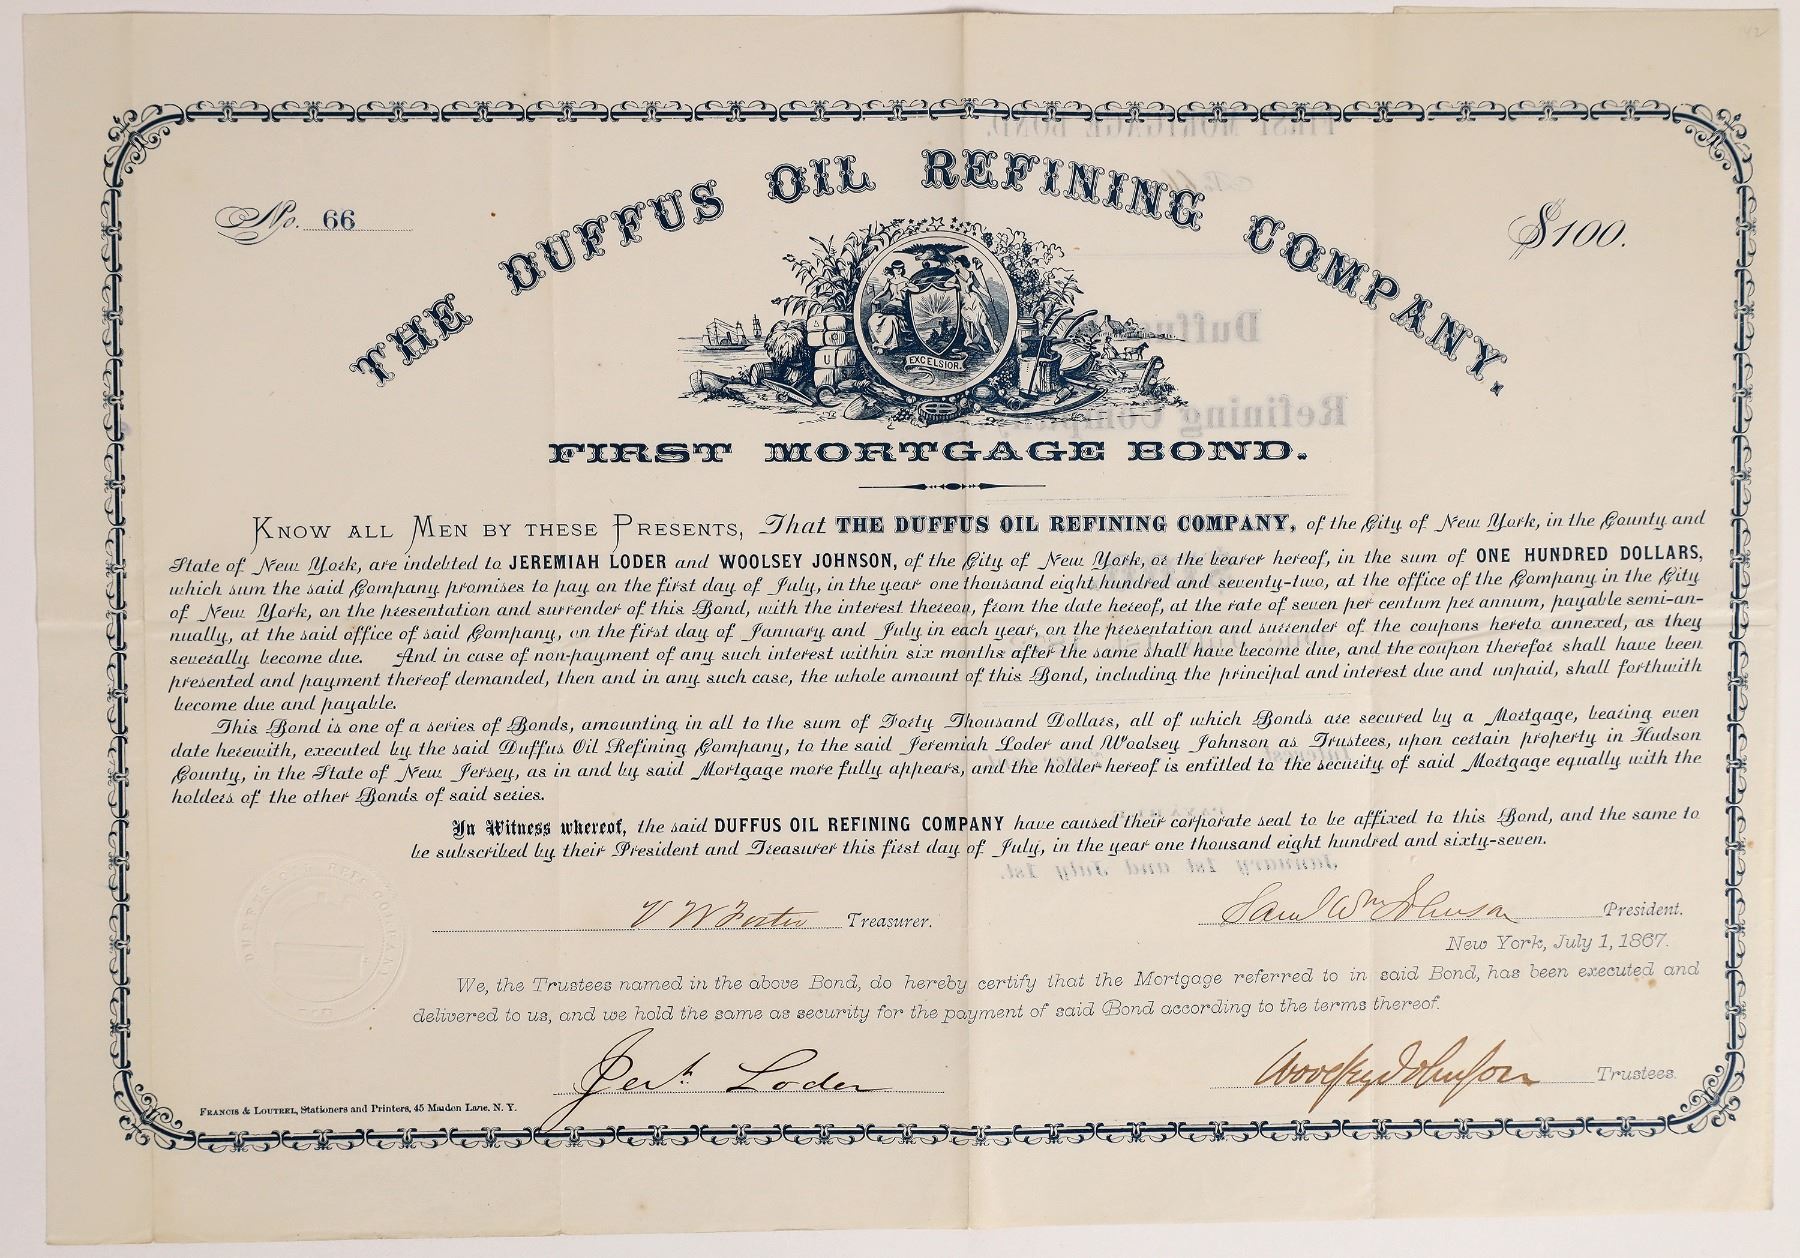 THE DUFFUS OIL REFINING COMPANY.
No. 66
$100.
EXCELSIOR.
FIRST MORTGAGE BOND.
KNOW ALL MEN BY THESE PRESENTS, That THE DUFFUS OIL REFINING COMPANY, of the City of New York, in the County and
State of New York, are indebted to JEREMIAH LODER and WOOLSEY JOHNSON, of the City of New York, or the bearer hereof, in the sum of ONE HUNDRED DOLLARS,
which sum the said Company promises to pay on the first day of July, in the year one thousand eight hundred and seventy-two, at the office of the Company in the City
of New York, on the presentation and surrender of this Bond, with the interest thereon, from the date hereof, at the rate of seven per centum per annum, payable semi-an-
nually, at the said office of said Company, on the first day of January and July in each year, on the presentation and surrender of the coupons hereto annexed, as they
severally become due. And in case of non-payment of any such interest within six months after the same shall have become due, and the coupon therefor shall have been
presented and payment thereof demanded, then and in any such case, the whole amount of this Bond, including the principal and interest due and unpaid, shall forthwith
become due and payable.
This Bond is one of a series of Bonds, amounting in all to the sum of Forty Thousand Dollars, all of which Bonds are secured by a Mortgage, bearing even
date herewith, executed by the said Duffus Oil Refining Company, to the said Jeremiah Loder and Woolsey Johnson as Trustees, upon certain property in Hudson
County, in the State of New Jersey, as in and by said Mortgage more fully appears, and the holder hereof is entitled to the security of said Mortgage equally with the
holders of the other Bonds of said series.
In Witness whereof, the said DUFFUS OIL REFINING COMPANY have caused their corporate seal to be affixed to this Bond, and the same to
be subscribed by their President and Treasurer this first day of July, in the year one thousand eight hundred and sixty-seven.
V W Foster Treasurer.
Saml Wm Johnson President.
New York, July 1, 1867.
We, the Trustees named in the above Bond, do hereby certify that the Mortgage referred to in said Bond, has been executed and
delivered to us, and we hold the same as security for the payment of said Bond according to the terms thereof.
Jerh Loder
Woolsey Johnson Trustees.
FRANCIS & LOUTREL, Stationers and Printers, 45 Maiden Lane, N. Y.